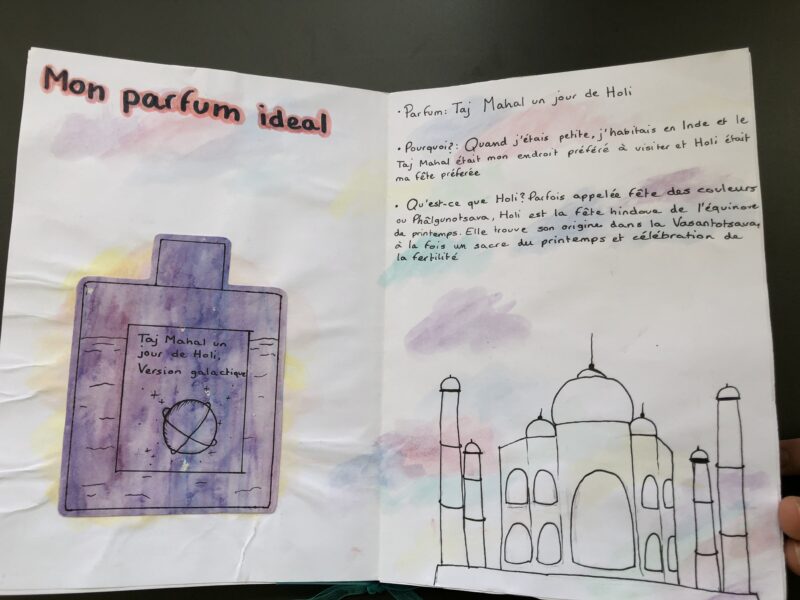 Mon parfum ideal
Taj Mahal un
jour de Holi,
Version galactique
• Parfum: Taj Mahal un jour de Holi
• Pourquoi?: Quand j'étais petite, j'habitais en Inde et le
Taj Mahal était mon endroit préféré à visiter et Holi était
ma fête préferée
• Qu'est-ce que Holi? Parfois appelée fête des couleurs
ou Phâlgunotsava, Holi est la fête hindoue de l'équinoxe
de printemps. Elle trouve son origine dans la Vasantotsava,
à la fois un sacre du printemps et célébration de
la fertilité